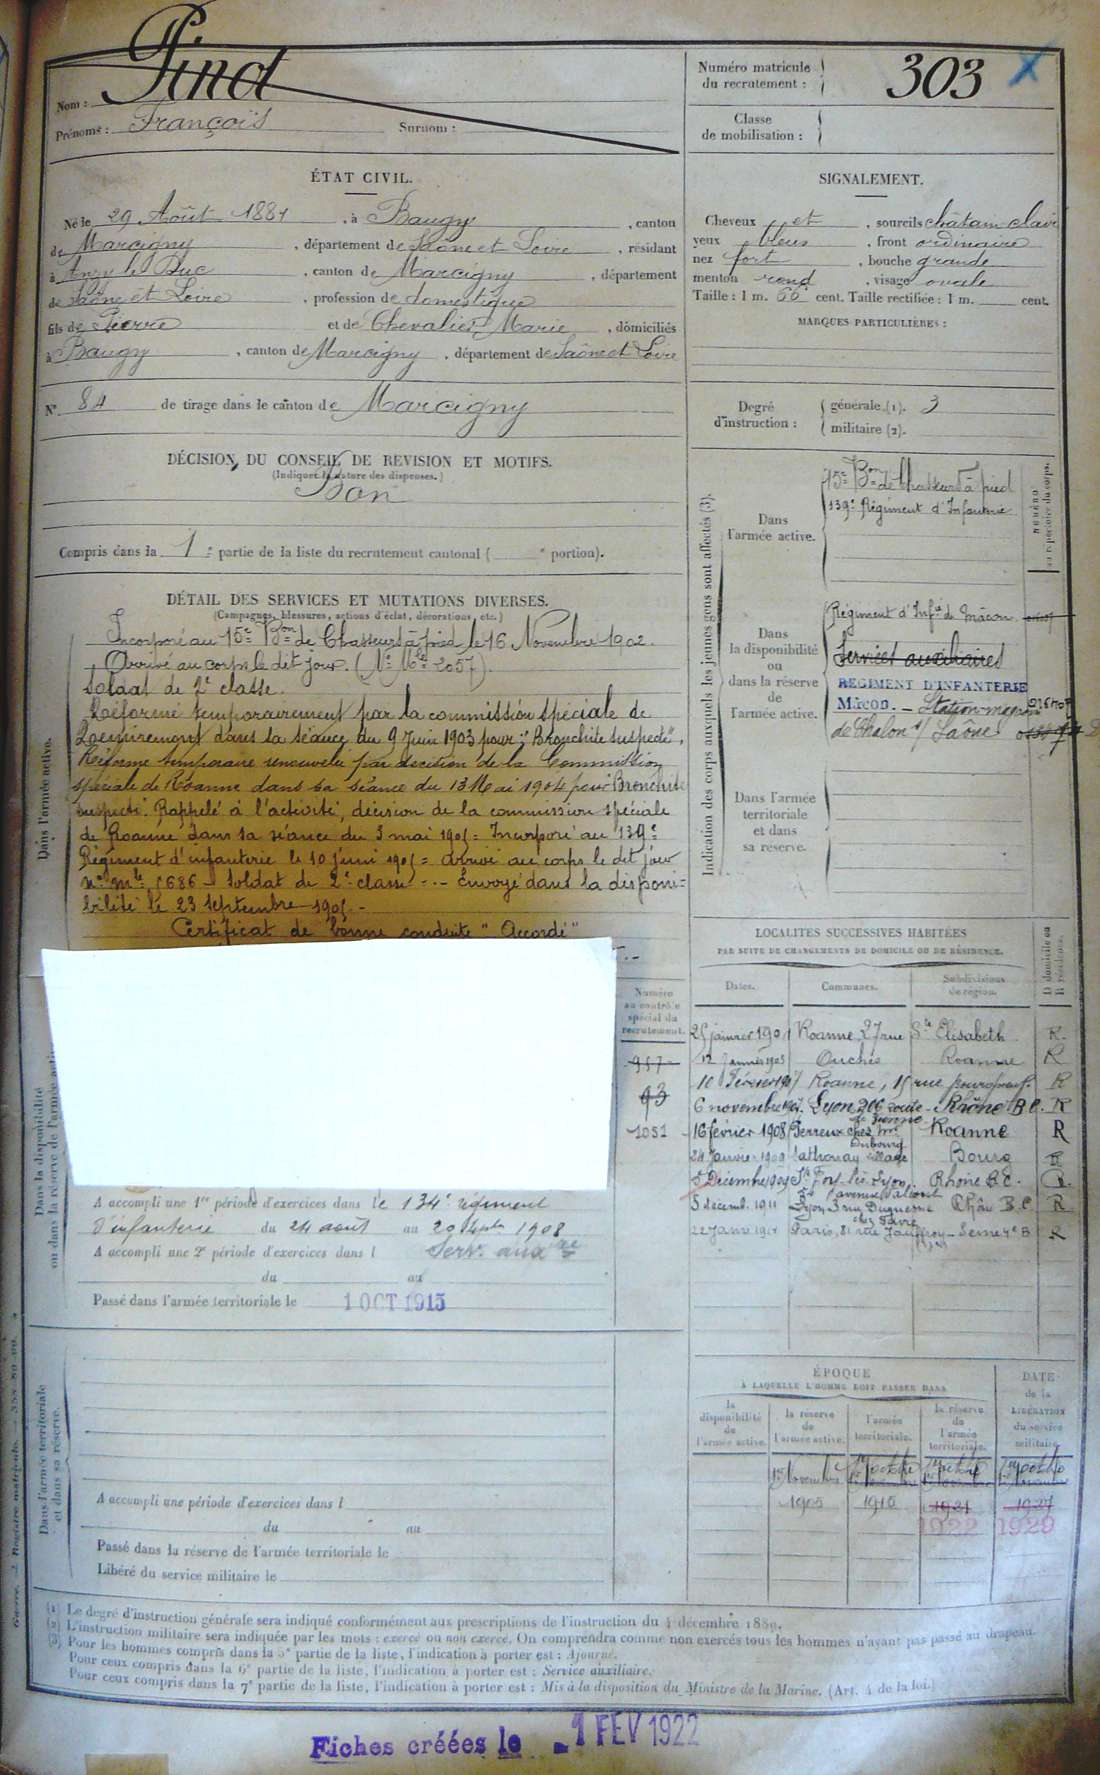 Nom : Pind
Prénoms : François Surnom :
Numéro matricule du recrutement : 303
Classe de mobilisation :
ÉTAT CIVIL.
Né le 29 Août 1881, à Baugy, canton
de Marcigny, département de Saône et Loire, résidant
à Anzy le Duc, canton de Marcigny, département
de Saône et Loire, profession de domestique
fils de Pierre et de Chevalier Marie, domiciliés
à Baugy, canton de Marcigny, département de Saône et Loire
N° 84 de tirage dans le canton de Marcigny
SIGNALEMENT.
Cheveux et, sourcils châtain clair
yeux bleus, front ordinaire
nez fort, bouche grande
menton rond, visage ovale
Taille : 1 m. 66 cent. Taille rectifiée : 1 m. cent.
MARQUES PARTICULIÈRES :
Degré d'instruction : générale (1). 3
militaire (2).
DÉCISION DU CONSEIL DE REVISION ET MOTIFS.
(Indiquer la nature des dispenses.)
Bon
Compris dans la 1e partie de la liste du recrutement cantonal ( e portion).
DÉTAIL DES SERVICES ET MUTATIONS DIVERSES.
(Campagnes, blessures, actions d'éclat, décorations, etc.)
Dans l'armée active.
Incorporé au 15e Bon de Chasseurs à pied le 16 Novembre 1902.
Arrivé au corps le dit jour. (No Mle 2057).
Soldat de 2e classe.
Réformé temporairement par la commission spéciale de
Remiremont dans la séance du 9 Juin 1903 pour : "Bronchite suspecte",
Réforme temporaire renouvelée par décision de la Commission
spéciale de Roanne dans sa séance du 13 Mai 1904 pour "Bronchite
suspecte". Rappelé à l'activité, décision de la commission spéciale
de Roanne dans sa séance du 3 mai 1905 = Incorporé au 139e
Régiment d'infanterie le 10 juin 1905 = arrivé au corps le dit jour
n° mle 5686 - Soldat de 2e classe --- Envoyé dans la disponi-
bilité le 23 septembre 1905 -
Certificat de bonne conduite "Accordé"
Indication des corps auxquels les jeunes gens sont affectés (3).
NUMÉRO au répertoire du corps.
Dans l'armée active.
15e Bon de Chasseurs à pied
139e Régiment d'Infanterie
Dans la disponibilité ou dans la réserve de l'armée active.
Régiment d'Infie de Mâcon
Services auxiliaires
REGIMENT D'INFANTERIE
Mâcon. - Station-magasin
de Chalon s/ Saône
Dans l'armée territoriale et dans sa réserve.
LOCALITÉS SUCCESSIVES HABITÉES
PAR SUITE DE CHANGEMENTS DE DOMICILE OU DE RÉSIDENCE.
Dates. Communes. Subdivisions de région. D domicile ou R résidence.
Roanne 27 rue Ste Elisabeth R.
12 Janvier 1905 Ouches Roanne R
16 Février 1907 Roanne, 15 rue R
6 novembre 1907. Lyon 206 route de Vienne - Rhône B C. R
16 février 1908 Perreux chez Mr Dubourg Roanne R
24 Janvier 1909 village Bourg R
5 Décembre 1909 Ste Foy lès Lyon, Rhône B.C. R
5 décemb. 1911 Lyon 3 rue Duguesne chez Favre Rhône B.C. R
22 Janv 1914 Paris, 81 rue Jouffroy - Seine 4e B R
Dans la disponibilité ou dans la réserve de l'armée active
Numéro au contrôle spécial du recrutement.
957
93
1051
A accompli une 1re période d'exercices dans le 134e régiment
d'infanterie du 24 août au 20 Septe 1908
A accompli une 2e période d'exercices dans l Serv. auxre
du au
Passé dans l'armée territoriale le 1 OCT 1915
ÉPOQUE
À LAQUELLE L'HOMME DOIT PASSER DANS
DATE de la LIBÉRATION du service militaire.
la disponibilité de l'armée active. la réserve de l'armée active. l'armée territoriale. la réserve de l'armée territoriale.
1er Novembre 1er octobre 1er octobre 1er octobre
1905 1915 1921 1927
1922 1929
Dans l'armée territoriale et dans sa réserve.
A accompli une période d'exercices dans l
du au
Passé dans la réserve de l'armée territoriale le
Libéré du service militaire le
(1) Le degré d'instruction générale sera indiqué conformément aux prescriptions de l'instruction du 4 décembre 1889.
(2) L'instruction militaire sera indiquée par les mots : exercé ou non exercé. On comprendra comme non exercés tous les hommes n'ayant pas passé au drapeau.
(3) Pour les hommes compris dans la 5e partie de la liste, l'indication à porter est : Ajourné.
Pour ceux compris dans la 6e partie de la liste, l'indication à porter est : Service auxiliaire.
Pour ceux compris dans la 7e partie de la liste, l'indication à porter est : Mis à la disposition du Ministre de la Marine. (Art. 4 de la loi.)
Fiches créées le 1 FEV 1922